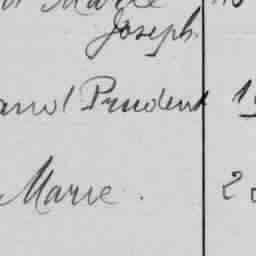 Marie
Joseph.
and Prudent 1
Marie. 2